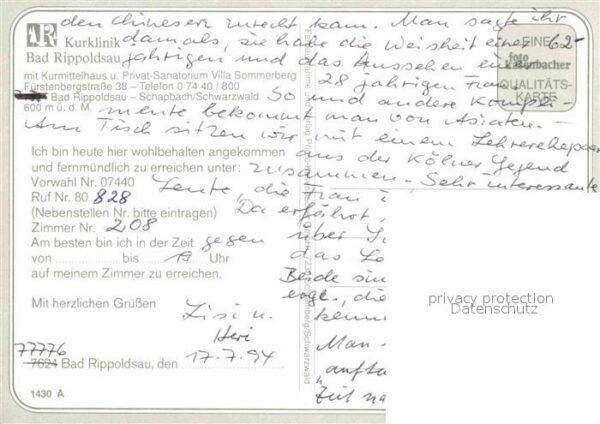 den Chinesen zurecht kam. Man sagte ihr
AR Kurklinik damals, sie habe die Weisheit einer 62-
Bad Rippoldsau jährigen und das Aussehen einer
mit Kurmittelhaus u. Privat-Sanatorium Villa Sommerberg
28 jährigen Frau.
Fürstenbergstraße 38 – Telefon 0 74 40 / 800
Bad Rippoldsau – Schapbach/Schwarzwald
So und andere Kompli-
600 m ü. d. M.
mente bekommt man von Asiaten.
EINE
foto
Kasenbacher
QUALITÄTS-
KARTE
Am Tisch sitzen wir mit einem Lehrerehepaar
Ich bin heute hier wohlbehalten angekommen
aus der Kölner Gegend
und fernmündlich zu erreichen unter:
zusammen. Sehr interessante
Vorwahl Nr. 07440
Leute, die Frau
Ruf Nr. 80 828
(Nebenstellen Nr. bitte eintragen)
Da erfährt
Zimmer Nr. 208
Am besten bin ich in der Zeit gegen
über
von bis 19 Uhr
das
auf meinem Zimmer zu erreichen.
Beide sin
die
Mit herzlichen Grüßen
Lisi u.
Heri
kenn
Man
77776
7624 Bad Rippoldsau, den 17.7.94
1430 A
privacy protection
Datenschutz